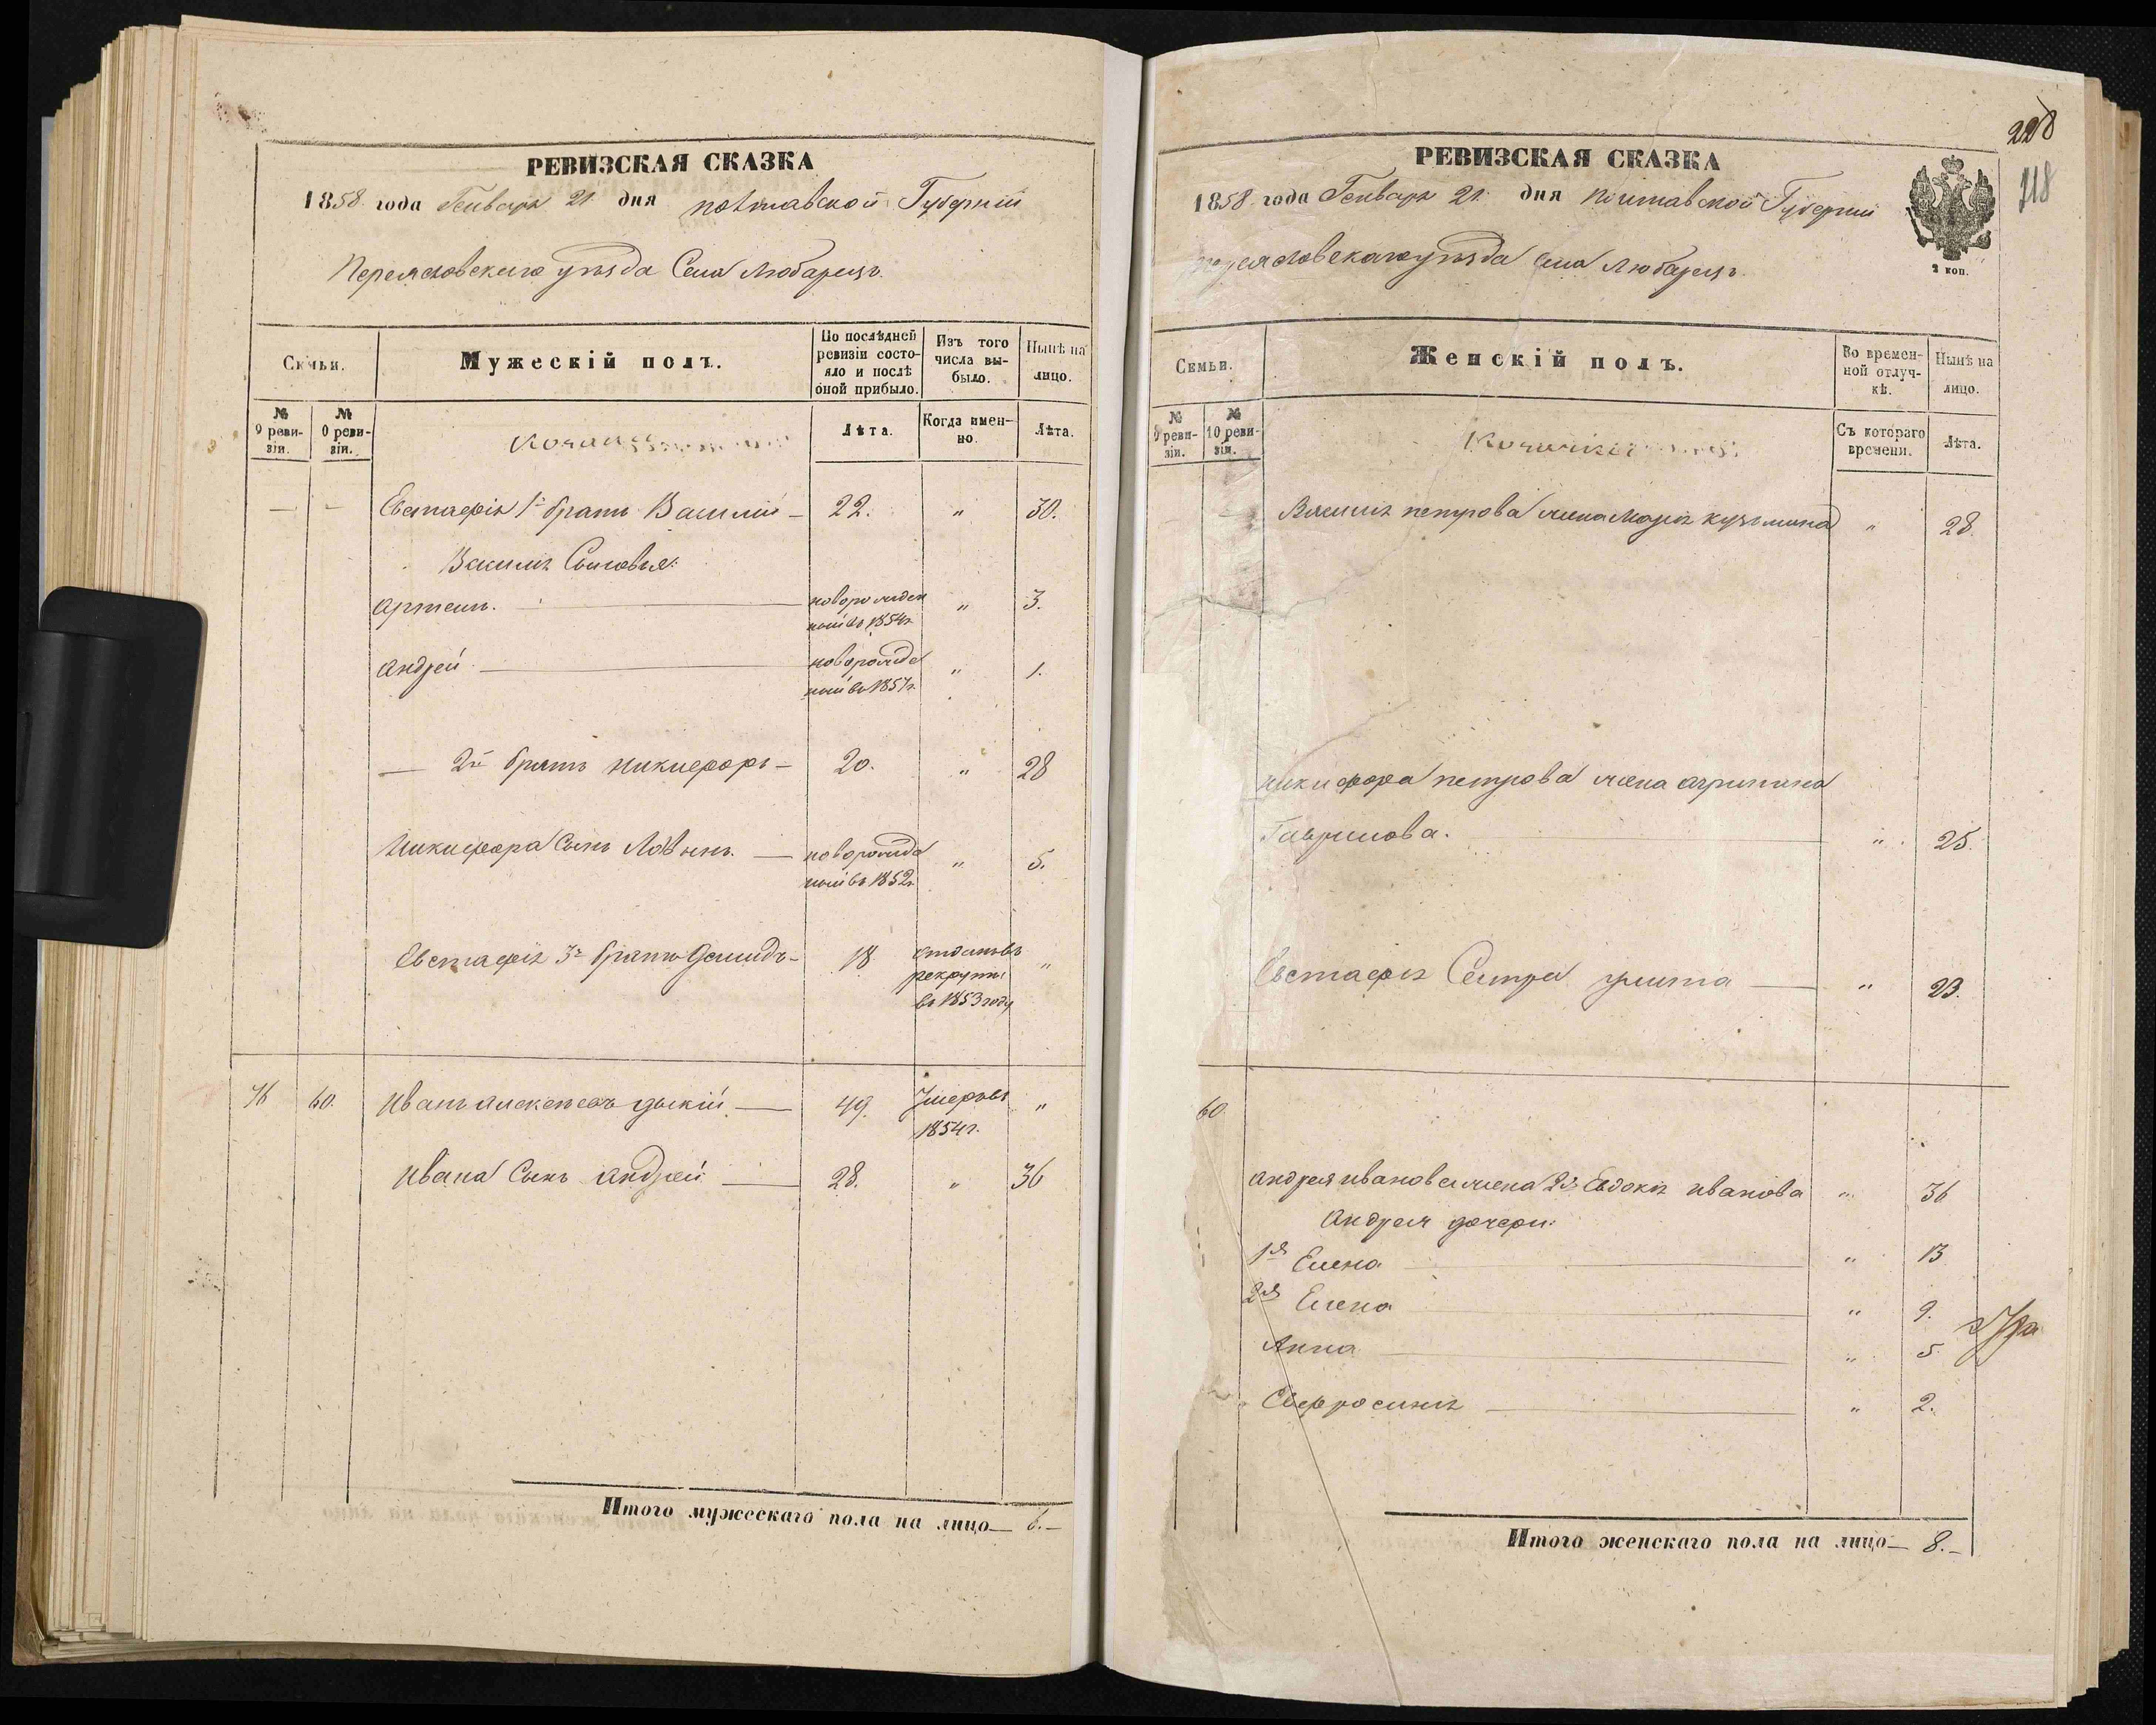 РЕВИЗСКАЯ СКАЗКА
1858 года Генваря 21 дня полтавской Губерніи
Переясловскаго уѣзда Села Любарецъ.
Семьи.
Мужескій полъ.
По послѣдней ревизіи состояло и послѣ оной прибыло.
Изъ того числа выбыло.
Нынѣ на лицо.
№ 9 ревизіи.
№ 10 ревизіи.
Лѣта.
Когда именно.
Лѣта.
— — Евстафія 1й братъ Василій — 22. " 30.
Василія Сыновья:
Артемъ. — новорожденный въ 1854г " 3.
Андрей — новорожденный въ 1857г. " 1.
— 2й братъ Никифоръ — 20. " 28
Никифора Сынъ — новорожденный въ 1852г " 5.
Евстафія 3й братъ Демидъ — 18 отданъ въ рекруты въ 1853 году "
76 60. Иванъ Алексѣевъ — 49. Умеръ въ 1854г. "
Ивана Сынъ Андрей — 28. " 36
Итого мужескаго пола на лицо — 6. —
228
118
РЕВИЗСКАЯ СКАЗКА
1858 года Генваря 21 дня Полтавской Губерніи
Переясловскаго уѣзда Села Любарецъ.
2 коп.
Семьи.
Женскій полъ.
Во временной отлучкѣ.
Нынѣ на лицо.
№ 9 ревизіи.
№ 10 ревизіи.
Съ котораго времени.
Лѣта.
Василія петрова жена Марія кузьмина " 28.
Никифора петрова жена агрипина
Гаврилова. — " 25.
Евстафія Сестра улита — " 23.
60.
Андрея иванова жена 2я Евдокія иванова " 36
Андрея дочери:
1я Елена — " 13
2я Елена — " 9.
Анна — " 5
Евфросинія — " 2.
Итого женскаго пола на лицо — 8. —